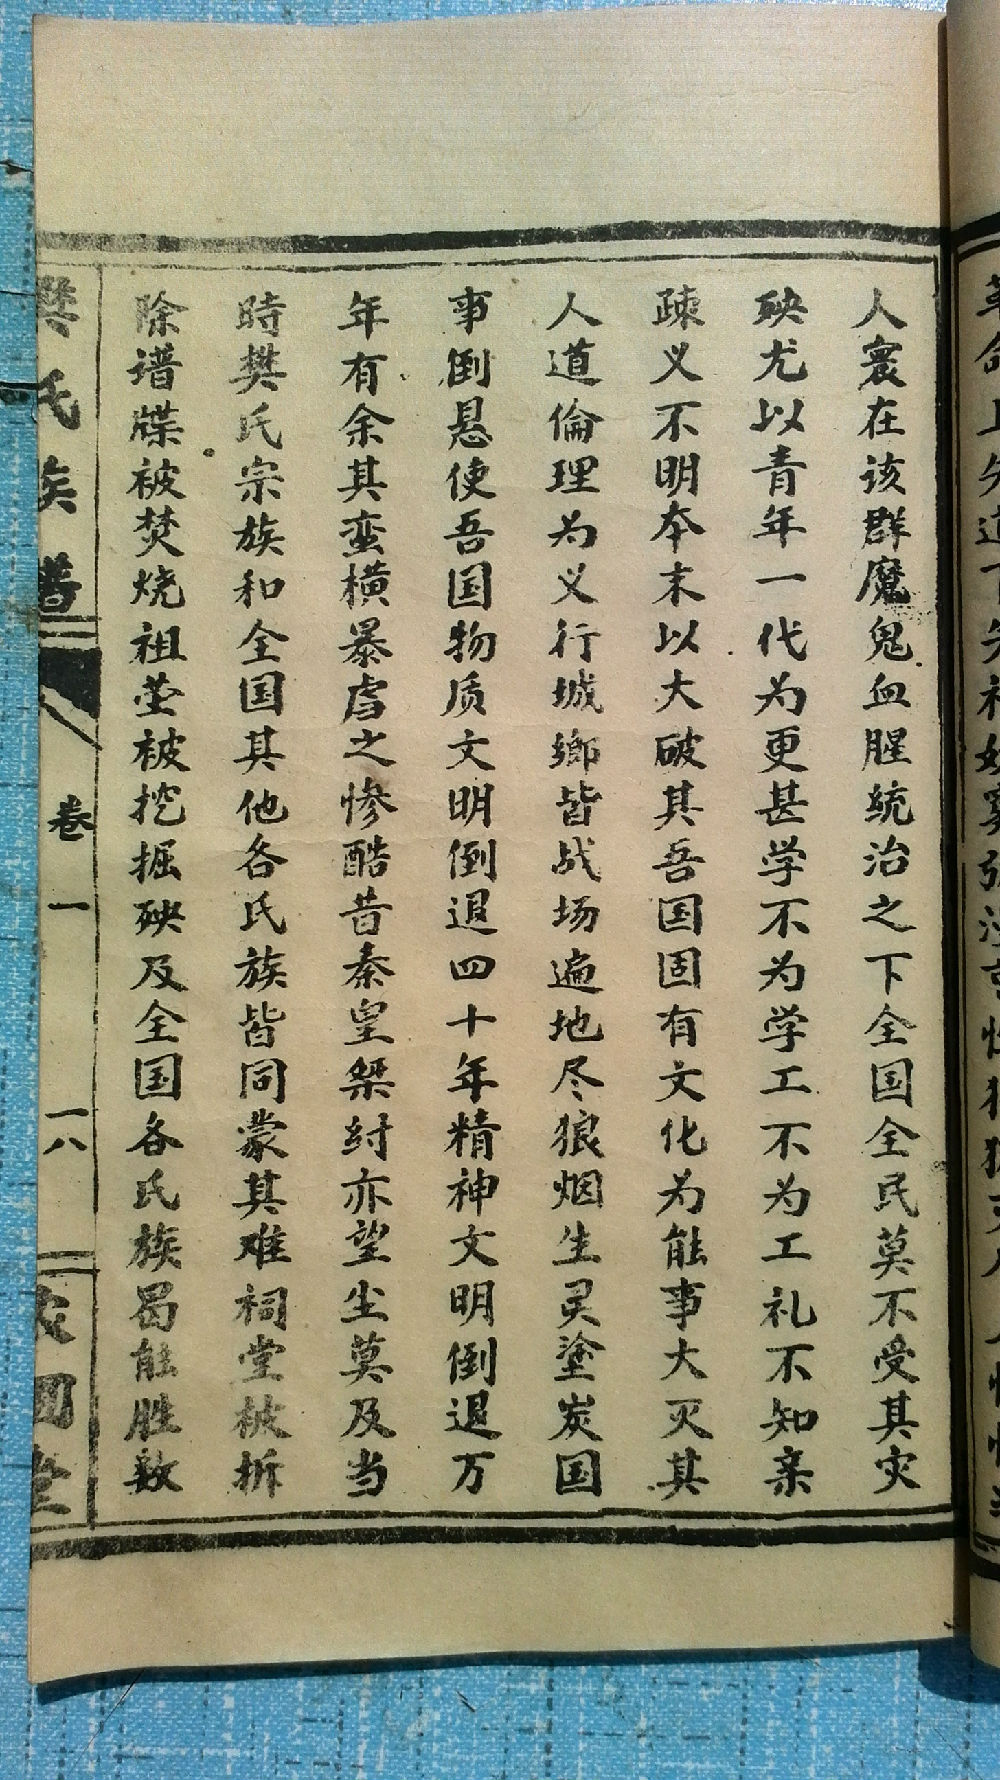 人寰在该群魔鬼血腥統治之下全国全民莫不受其灾
殃尤以青年一代为更甚学不为学工不为工礼不知亲
疎义不明本末以大破其吾国固有文化为能事大灭其
人道倫理为义行城鄉皆战场遍地尽狼烟生灵塗炭国
事倒悬使吾国物质文明倒退四十年精神文明倒退万
年有余其蛮横暴虐之惨酷昔秦皇桀纣亦望尘莫及当
時樊氏宗族和全国其他各氏族皆同蒙其难祠堂被拆
除谱牒被焚烧祖茔被挖掘殃及全国各氏族曷能胜数
樊氏族譜
卷一
一八